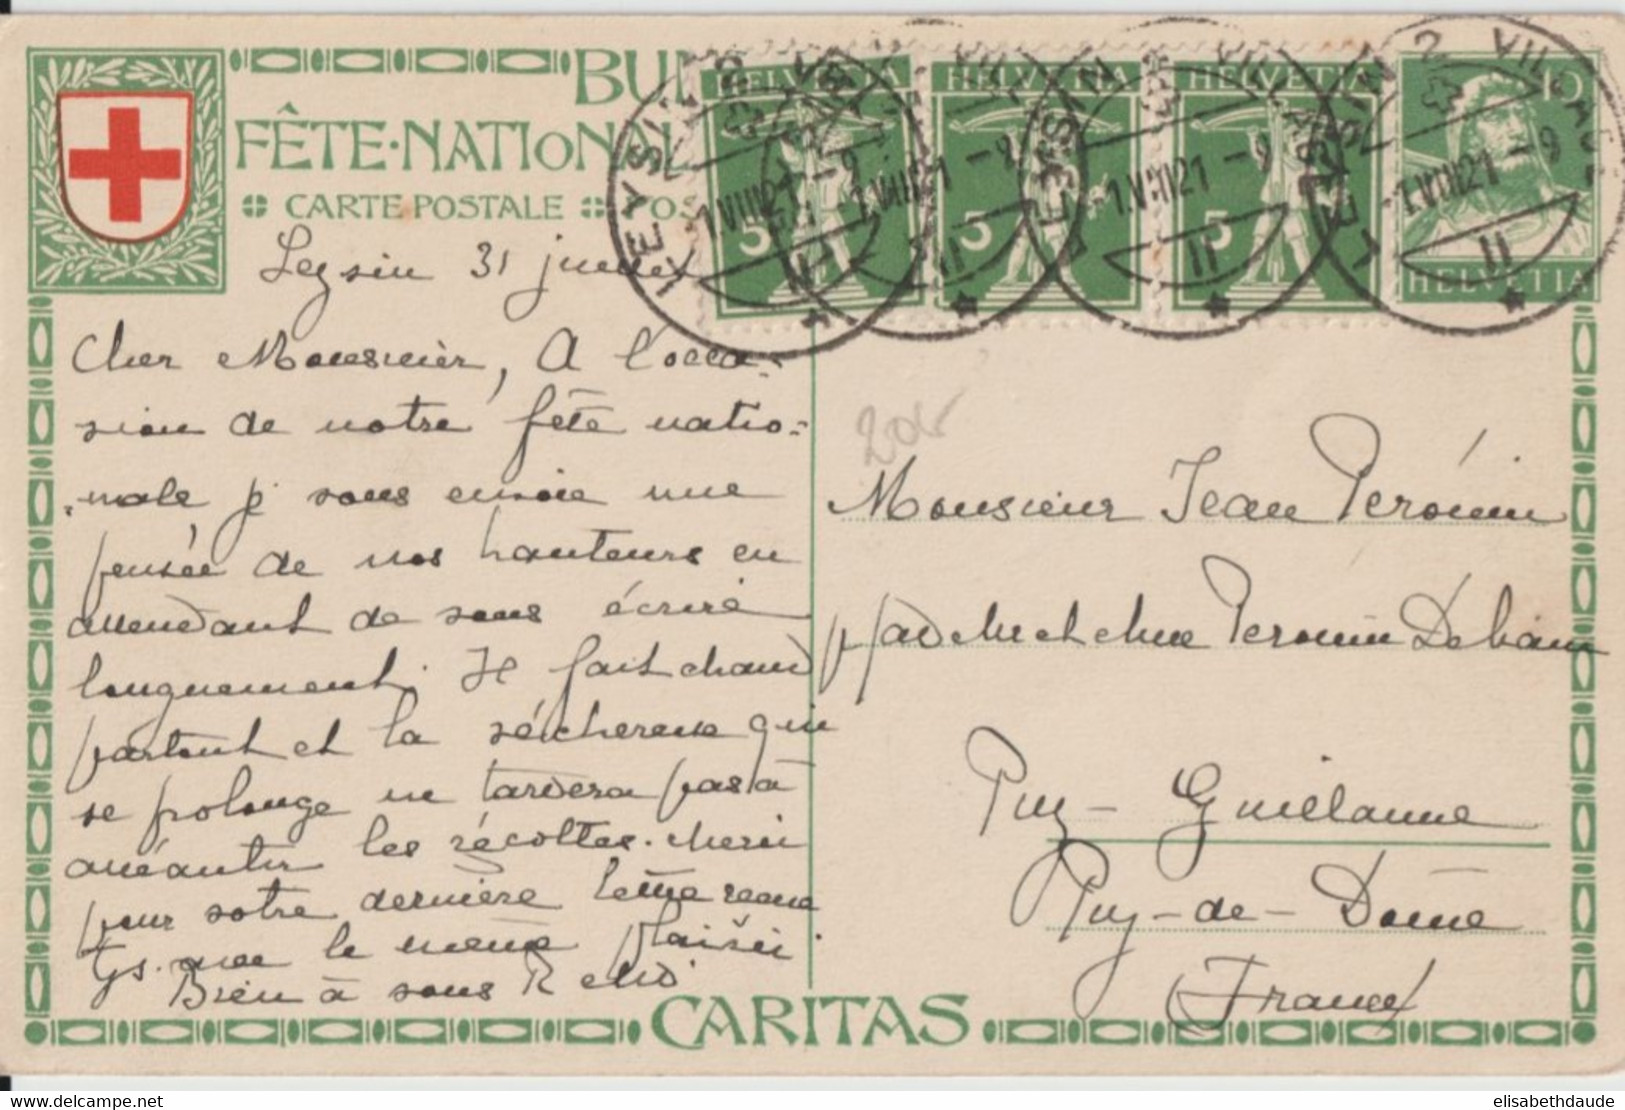 BUN
FÊTE·NATIONAL
CARTE POSTALE POS
HELVETIA HELVETIA HELVETIA 10
5 5 5 HELVETIA
LEYSIN 2 VILLAGE
1.VIII.21 - 9
II
Leysin 31 juillet
Cher Monsieur, A l'occa-
sion de notre fête natio-
-nale je vous envoie une
pensée de nos hauteurs en
attendant de vous écrire
longuement. Il fait chaud
partout et la sécheresse qui
se prolonge ne tardera pas à
anéantir les récoltes. Merci
pour votre dernière lettre reçue
Tjs. avec le même plaisir.
Bien à vous
20.-
Monsieur Jean Péronin
Péronin
Puy-Guillaume
Puy-de-Dôme
(France)
CARITAS
delcampe.net
elisabethdaude